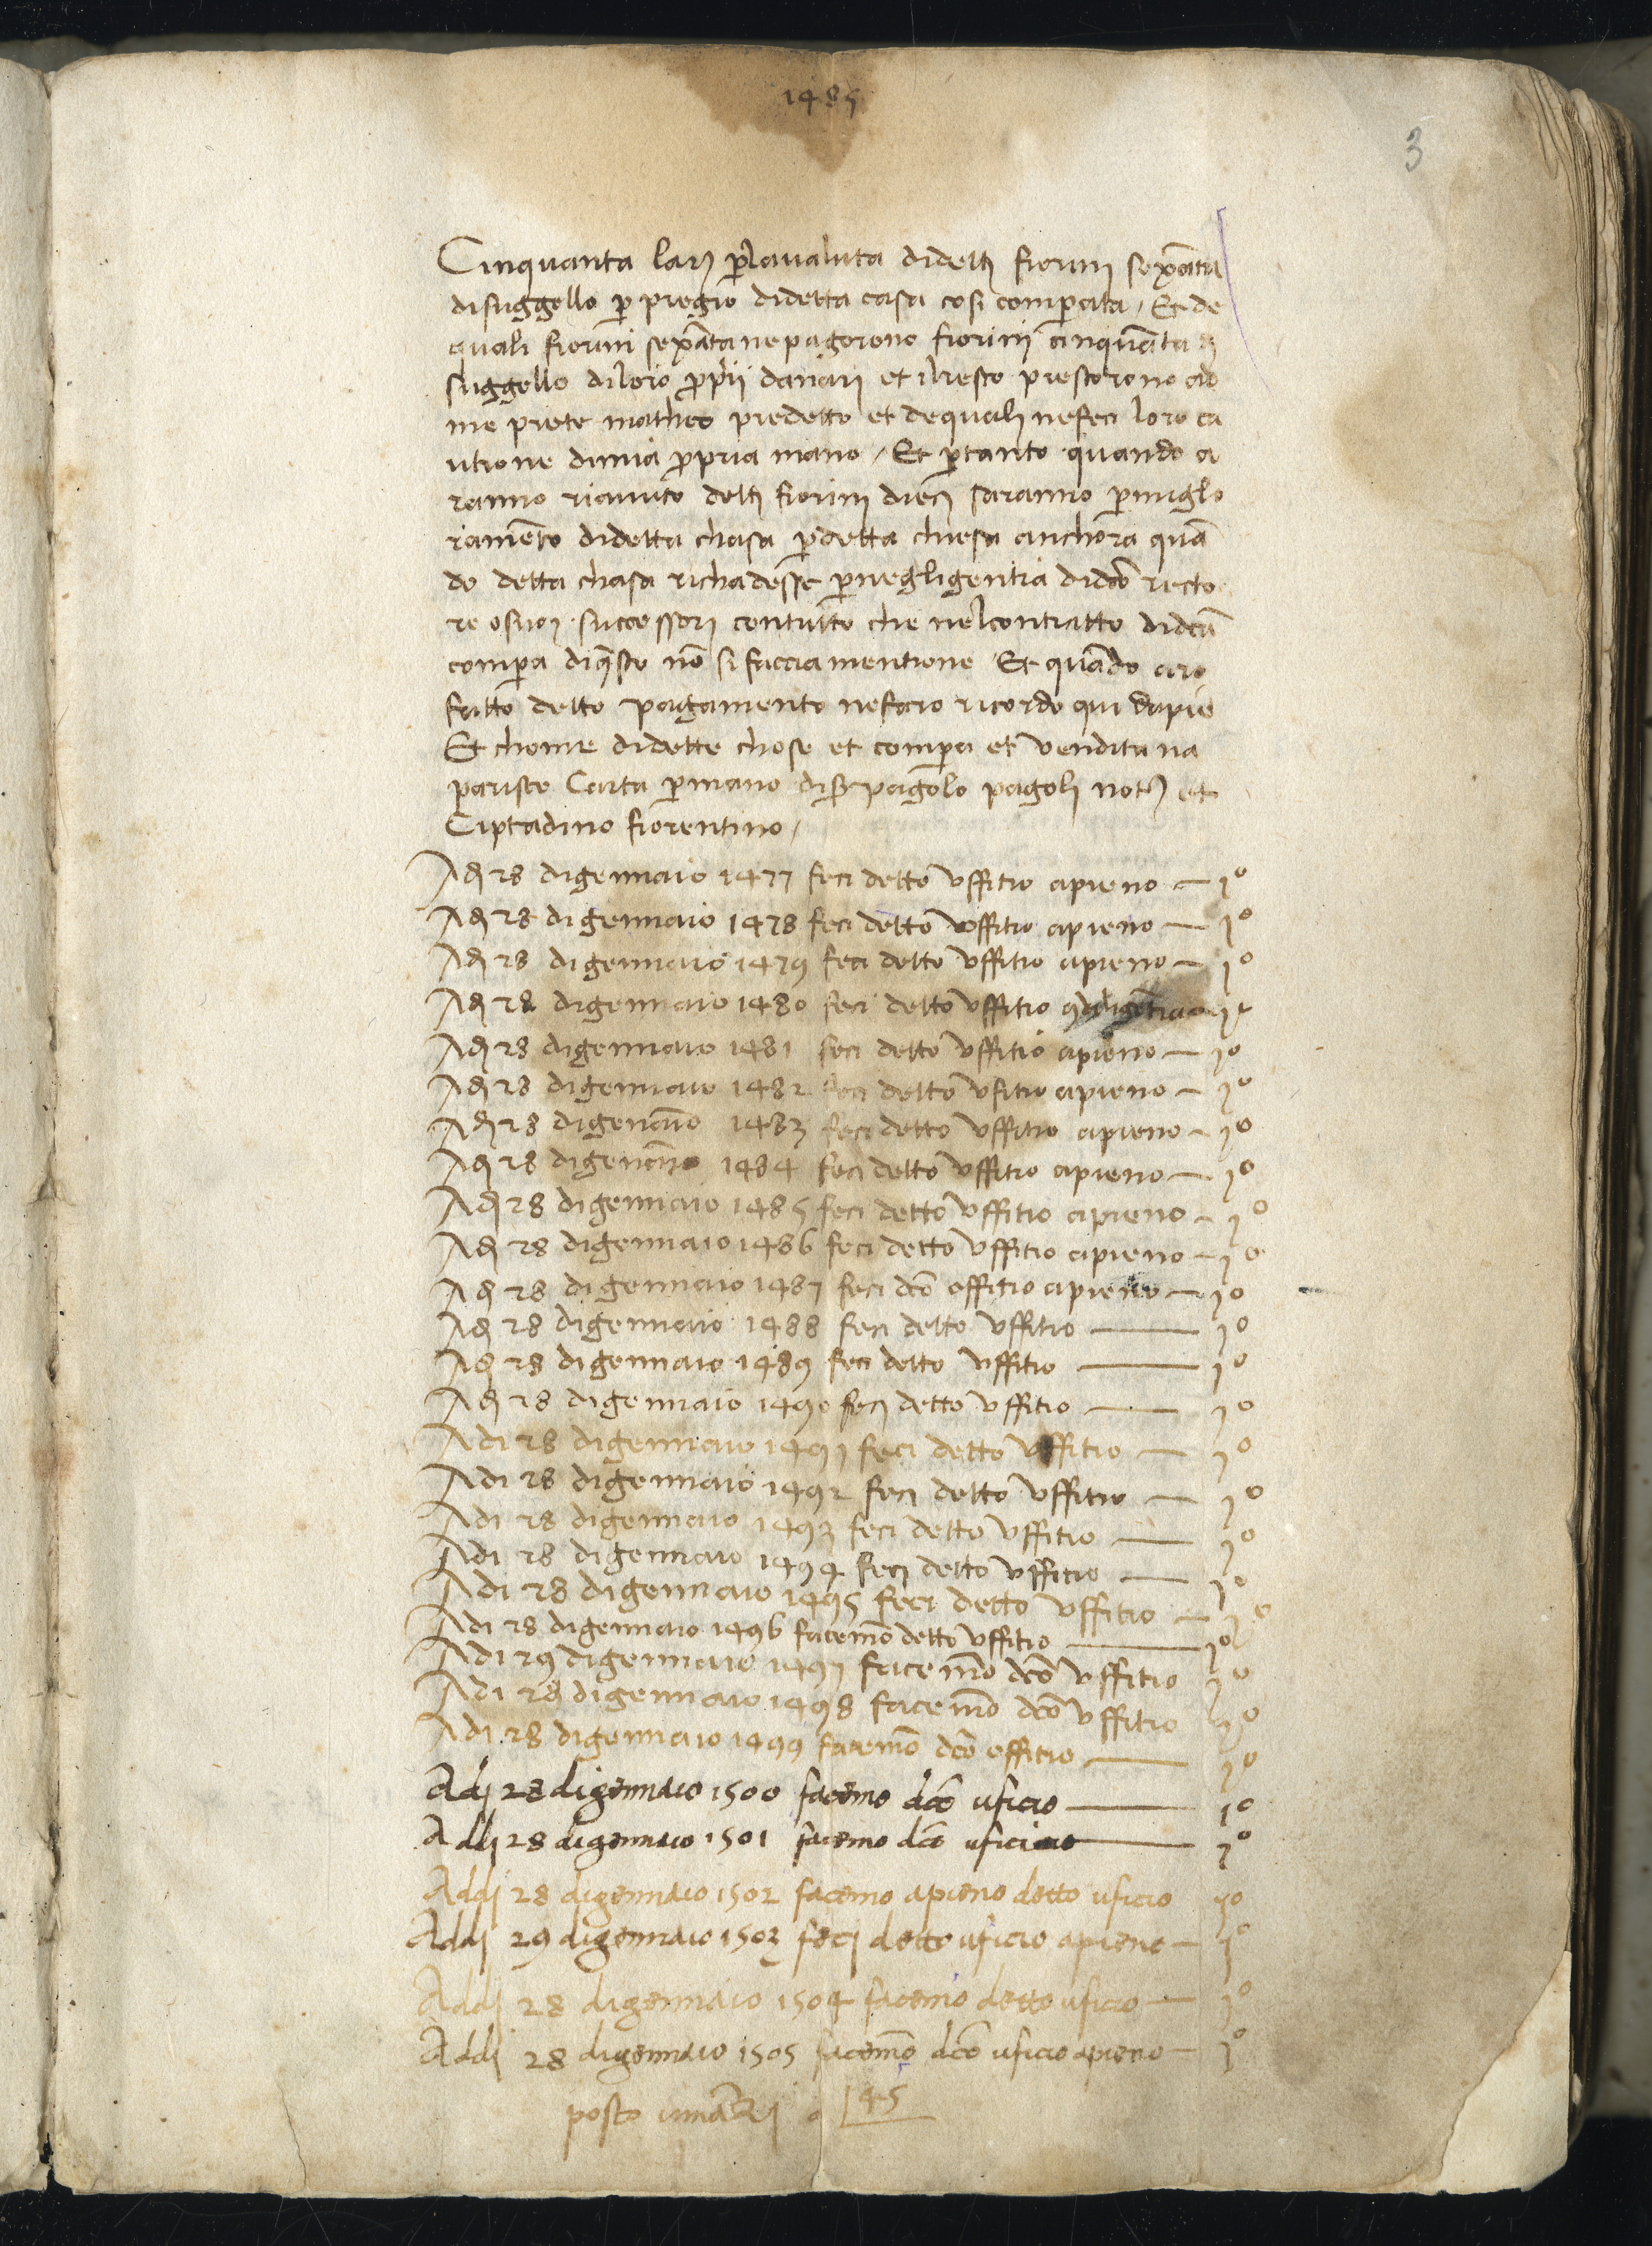 1485
3
Cinquanta larḡ p̄ lavaluta didettj fiorinj sexāta
disuggello p̄ pregio didetta casa cosi comperata / Et de
quali fiorini sexāta nepagorono fiorini cinquāta dj
suggello diloro p̄prij danari et ilresto prestorono ad
me prete matheo predetto et dequali nefeci loro ca
utione dimia p̄pria mano / Et p̄tanto quando a
ranno riavuto dettj fiorinj diecj saranno p̄miglo
ramēto didetta chasa p̄detta chiesa anchora quā
do detta chasa richadesse p̄negligentia didcō recto
re osuoj successorj contutto che nelcontratto didcā
compa diq̄sto nō si faccia mentione Et quādo aro
fatto detto pagamento nefaro ricordo qui dapie
Et chome didette chose et compa et vendita na
parisce Carta p̄mano diser pagolo pagolj notj et
Ciptadino fiorentino /
Adj 28 digennaio 1477 feci detto uffitio apieno — 1o
Adj 28 digennaio 1478 feci detto uffitio apieno — 1o
Adj 28 digennaio 1479 feci detto uffitio apieno — 1o
Adj 28 digennaio 1480 feci detto uffitio
Adj 28 digennaio 1481 feci detto uffitio apieno — 1o
Adj 28 digennaio 1482 feci detto ufitio apieno — 1o
Adj 28 digenāio 1483 feci detto uffitio apieno — 1o
Adj 28 digenāio 1484 feci detto uffitio apieno — 1o
Adj 28 digennaio 1485 feci detto uffitio apieno — 1o
Adj 28 digennaio 1486 feci detto uffitio apieno — 1o
Adj 28 digennaio 1487 feci dcō offitio apieno — 1o
Adj 28 digennaio 1488 feci detto uffitio — 1o
Adj 28 digennaio 1489 feci detto uffitio — 1o
Adj 28 digennaio 1490 fecj detto uffitio — 1o
Adi 28 digennaio 1491 feci detto uffitio — 1o
Adi 28 digennaio 1492 fecj detto uffitio — 1o
Adi 28 digennaio 1493 feci detto uffitio — 1o
Adi 28 digennaio 1494 fecj detto uffitio — 1o
Adi 28 digennaio 1495 feci detto uffitio — 1o
Adi 28 digennaio 1496 facemō detto uffitio — 1o
Adi 29 digennaio 1497 facemō dcō uffitio 1o
Adi 28 digennaio 1498 facemō dcō uffitio 1o
Adi 28 digennaio 1499 facemō dcō offitio — 1o
Adj 28 digennaio 1500 facemo dcō uficio — 1o
Addj 28 digennaio 1501 facemo dcō uficio — 1o
Addj 28 digennaio 1502 facemo apieno detto uficio 1o
Addj 29 digennaio 1503 fecj detto uficio apieno — 1o
Addj 28 digennaio 1504 facemo detto uficio — 1o
Addj 28 digennaio 1505 facemō dcō uficio apieno — 1o
posto innāzj a 45